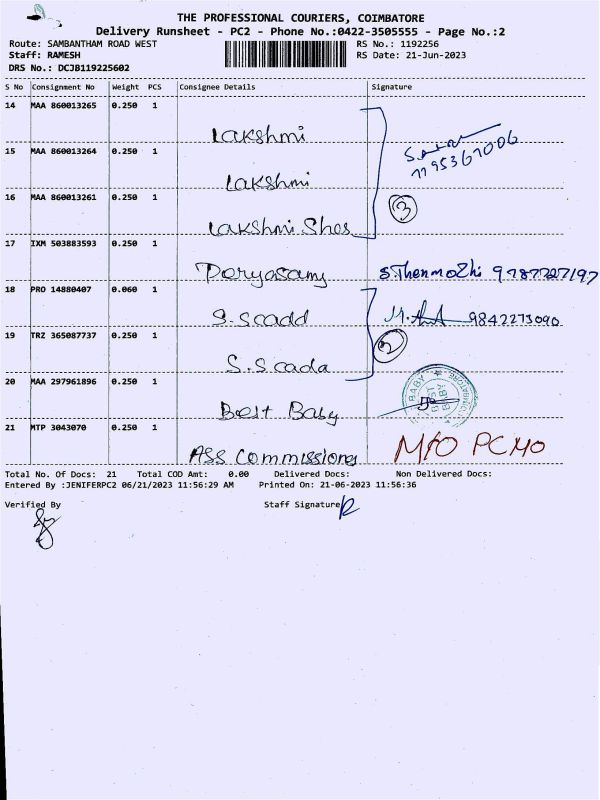 THE PROFESSIONAL COURIERS, COIMBATORE
Delivery Runsheet - PC2 - Phone No.:0422-3505555 - Page No.:2
Route: SAMBANTHAM ROAD WEST RS No.: 1192256
Staff: RAMESH RS Date: 21-Jun-2023
DRS No.: DCJB119225602
S No Consignment No Weight PCS Consignee Details Signature
14 MAA 860013265 0.250 1
Lakshmi
15 MAA 860013264 0.250 1
Lakshmi
16 MAA 860013261 0.250 1
3
Lakshmi Shos
17 IXM 503883593 0.250 1
Poryasamy S.Thenmozhi 9787727197
18 PRO 14880407 0.060 1
S.Scadd 9842273090
19 TRZ 365087737 0.250 1
2
S.Scada
20 MAA 297961896 0.250 1
BABY
Best Baby
21 MTP 3043070 0.250 1
ASS Commissiones M/O PCMO
Total No. Of Docs: 21 Total COD Amt: 0.00 Delivered Docs: Non Delivered Docs:
Entered By :JENIFERPC2 06/21/2023 11:56:29 AM Printed On: 21-06-2023 11:56:36
Verified By Staff Signature